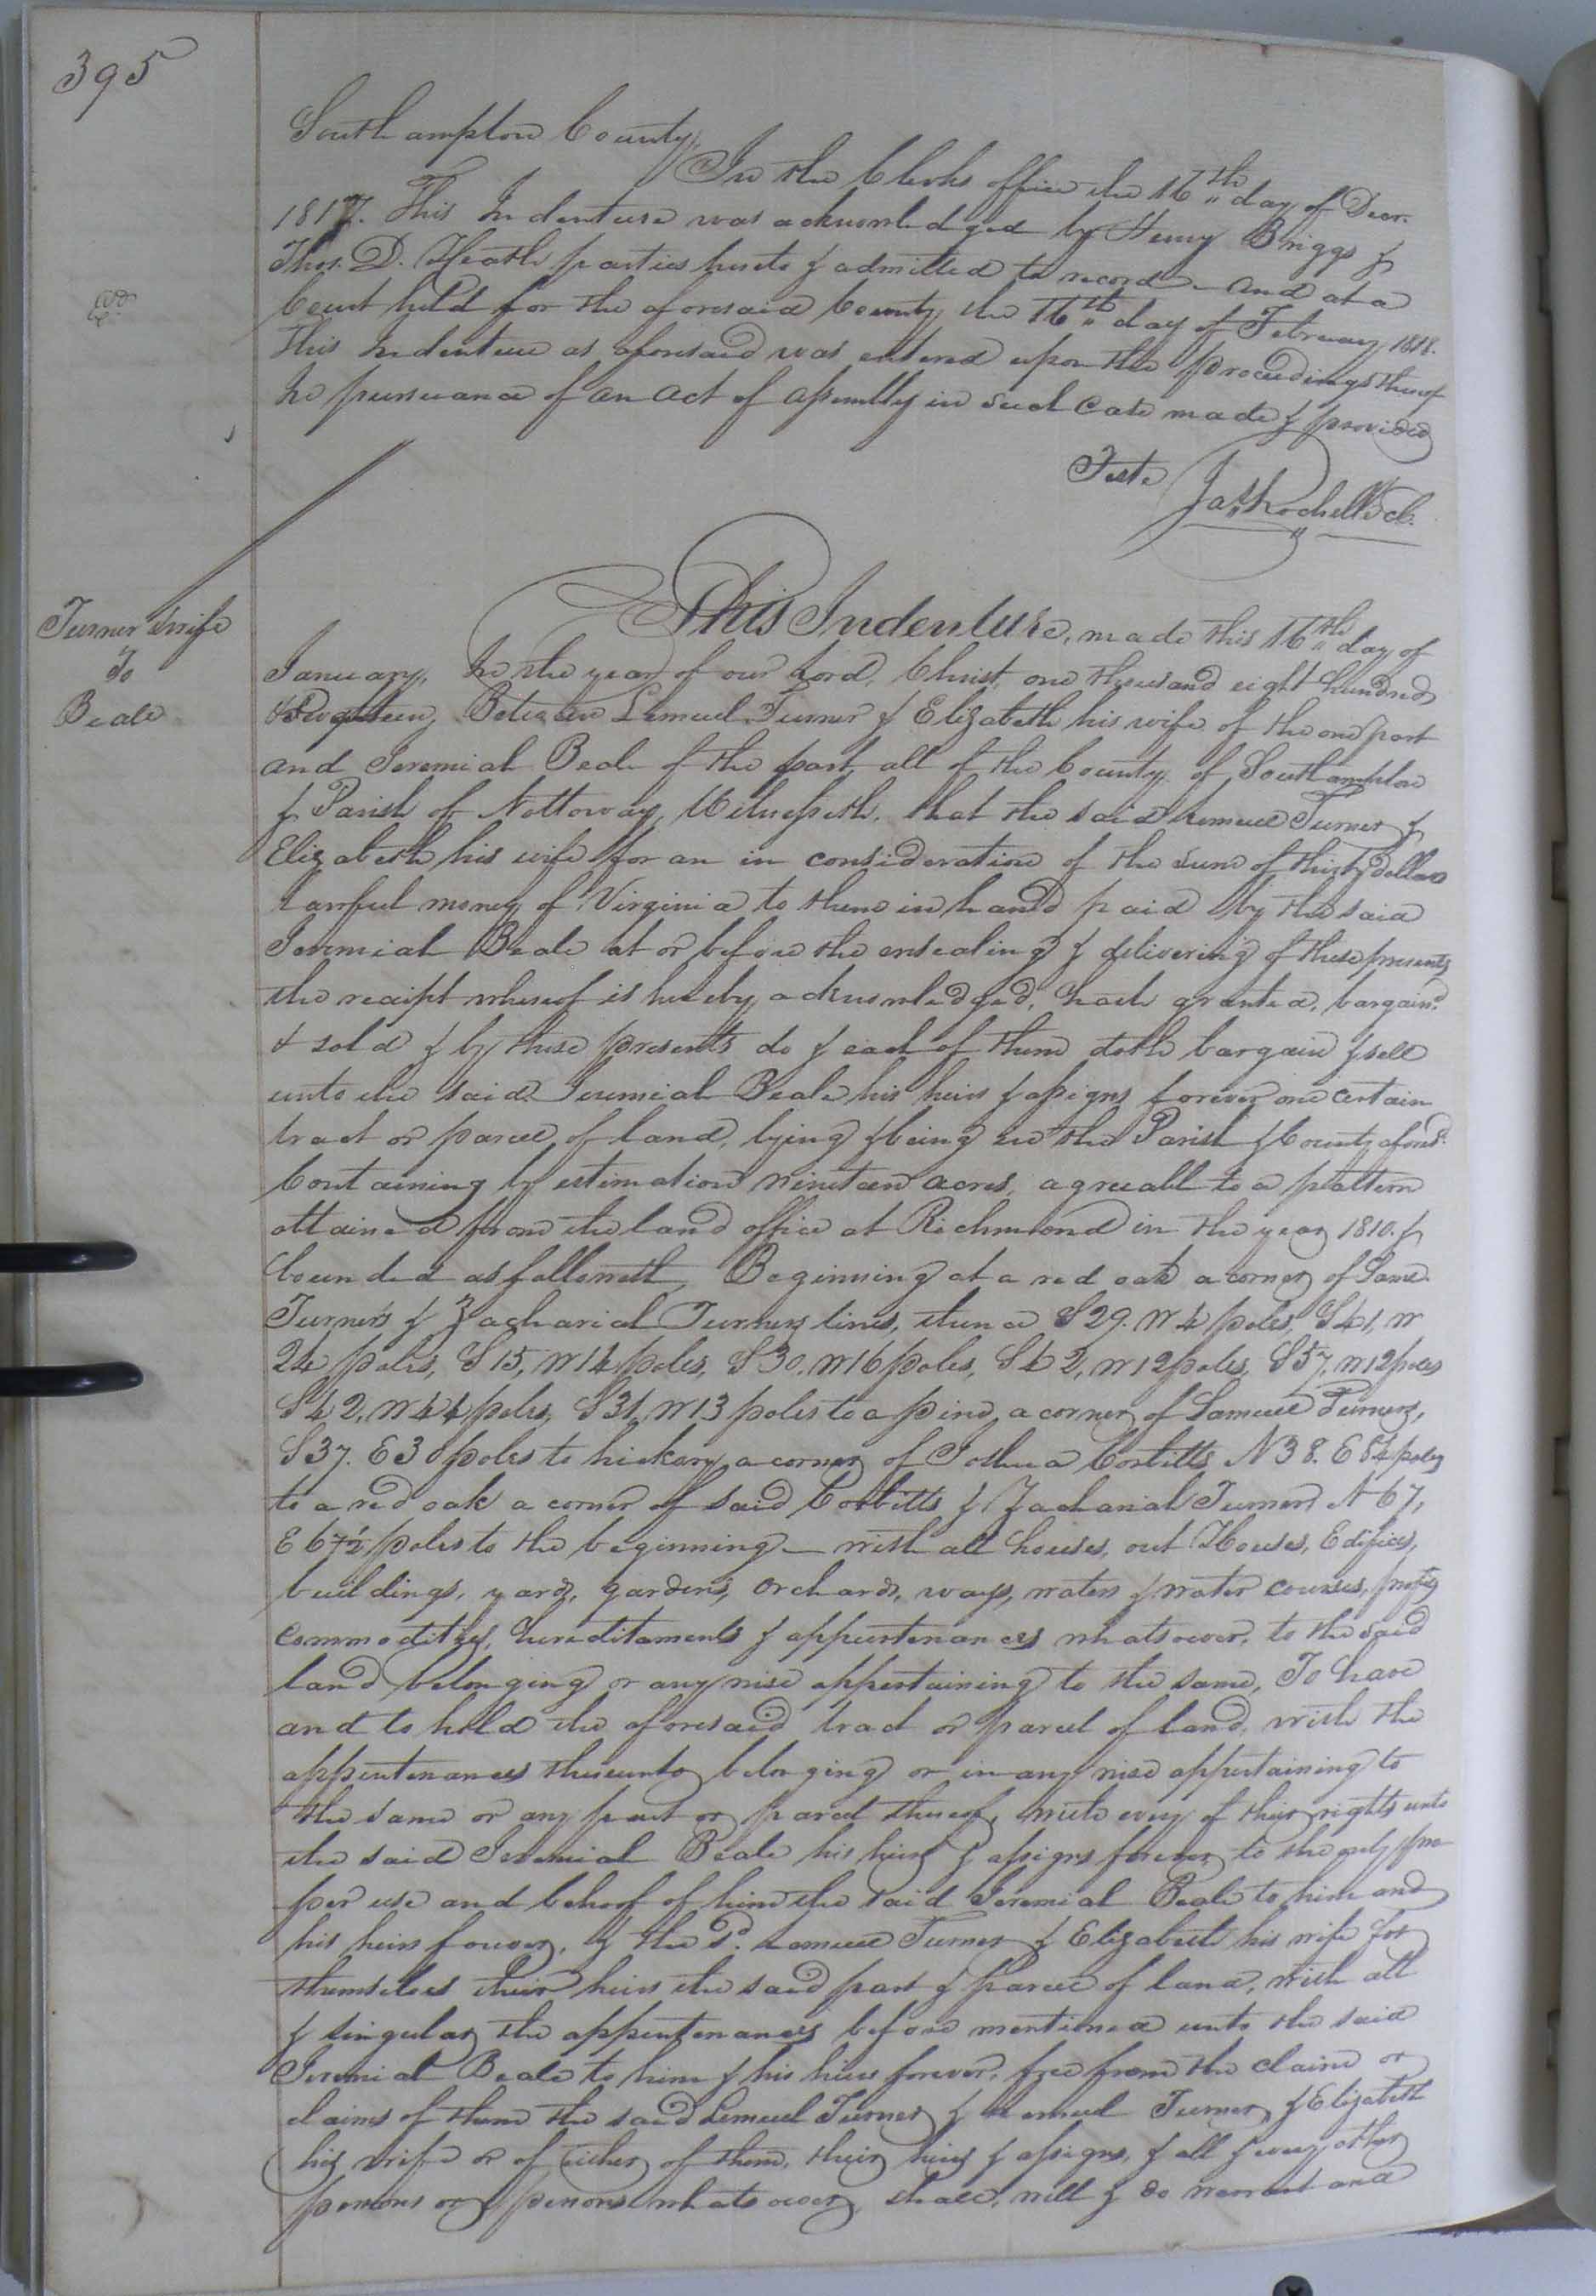 395
Southampton County,
In the Clerks office the 16th day of Decr.
1817. This Indenture was acknowledged by Henry Briggs &
Thos. D. Heath parties hereto & admitted to record – And at a
Court held for the aforesaid County the 16th day of February 1818.
This Indenture as aforesaid was entered upon the proceedings thereof
In pursuance of an Act of Assembly in such Case made & provided
Teste Jas Rochelle Cl.
Turner & wife
To
Beale
This Indenture, made this 16th day of
January, In the year of our Lord, Christ, one thousand eight hundred
Between Lemuel Turner & Elizabeth his wife of the one part
and Jeremiah Beale of the part, all of the County of Southampton
& Parish of Nottoway, Witnesseth, that the said Lemuel Turner &
Elizabeth his wife for an in consideration of the sum of thirty dollars
lawful money of Virginia to them in hand paid by the said
Jeremiah Beale at or before the ensealing & delivering of these presents
the receipt whereof is hereby acknowledged, hath granted, bargaind
& sold & by these presents do & each of them doth bargain & sell
unto the said Jeremiah Beale his heirs & assigns forever one certain
tract or parcel of land, lying & being in the Parish & County afores.d
Containing by estimation nineteen acres, agreeable to a pattern
obtained from the land office at Richmond in the year 1810. &
bounded as followeth, Beginning at a red oak a corner of
Turner's & Zachariah Turners lines, thence S 29. W 4 poles, S 41, W
24 poles, S 15, W 14 poles, S 30. W 16 poles, S 42, W 12 poles, S 57, W 12 poles
S 42, W 44 poles, S 31, W 13 poles to a pine, a corner of Lemuel Turners,
S 37. E 30 poles to hickory a corner of Joshua Corbitts, N 38. E 84 poles
to a red oak a corner of said Corbitts & Zachariah Turners N 67,
E 67½ poles to the beginning – with all houses, out Houses, Edifices,
buildings, yards, gardens, orchards, ways, waters & water courses, profits
Commoditys, hereditaments & appurtenances whatsoever, to the said
land belonging or any wise appertaining to the same, To have
and to hold the aforesaid tract or parcel of land, with the
appurtenances thereunto belonging or in any wise appertaining to
the same or any part or parcel thereof, with every of their rights unto
the said Jeremiah Beale his heirs & assigns forever to the only pro-
per use and behoof of him the said Jeremiah Beale to him and
his heirs forever, & the Sd. Lemuel Turner & Elizabeth his wife for
themselves their heirs the said part & parcel of land, with all
& singular the appurtenances before mentioned unto the said
Jeremiah Beale to him & his heirs forever, free from the claim or
claims of them the said Lemuel Turner & Lemuel Turner & Elizabeth
his wife or of either of them, their heirs & assigns, & all & every other
persons or persons whatsoever, shall, will & do warrant and